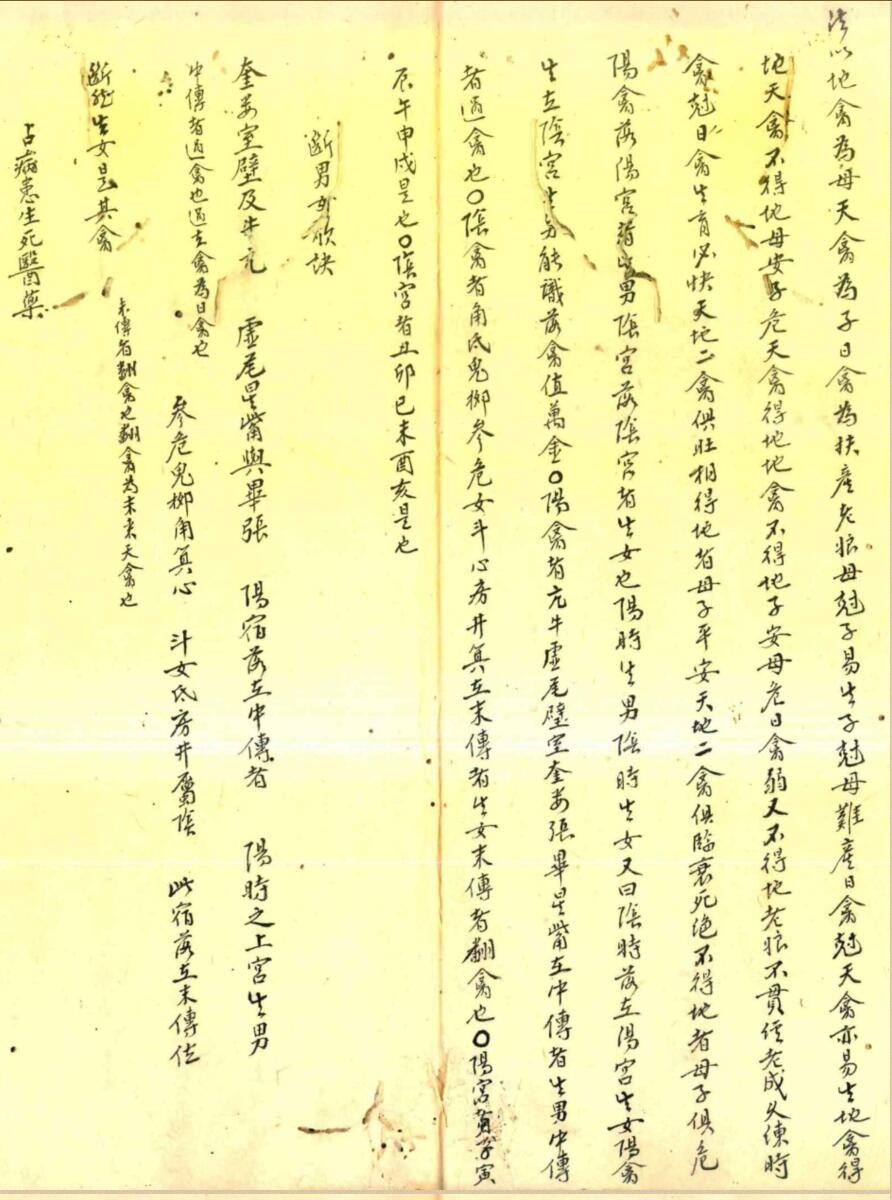 法以地禽為母天禽為子日禽為扶産老娘母尅子易生子尅母難産日禽尅天禽亦易生地禽得
地天禽不得地母安子危天禽得地地禽不得地子安母危日禽弱又不得地老娘不貫侄老成久練時
禽尅日禽生育必快天地二禽俱旺相得地者母子平安天地二禽俱臨衰死絶不得地者母子俱危
陽禽落陽宮者生男陰宮落陰宮者生女也陽時生男陰時生女又曰陰時落在陽宮生女陽禽
生在陰宮生男能識落禽值萬金〇陽禽者亢牛虛尾壁室奎娄張畢星觜在中傳者生男中傳
者過禽也〇陰禽者角氐鬼栁參危女斗心房井箕在末傳者生女末傳者翻禽也〇陽宮者子寅
辰午申戌是也〇陰宮者丑卯巳未酉亥是也
断男女歌訣
奎娄室壁及牛亢 虛尾星觜與畢張 陽宿落在中傳者 陽時之上宮生男
中傳者過禽也過去禽為日禽也 參危鬼栁角箕心 斗女氐房井屬陰 此宿落在末傳位
断然生女是其禽 末傳者翻禽也翻禽為未来天禽也
占病患生死醫藥